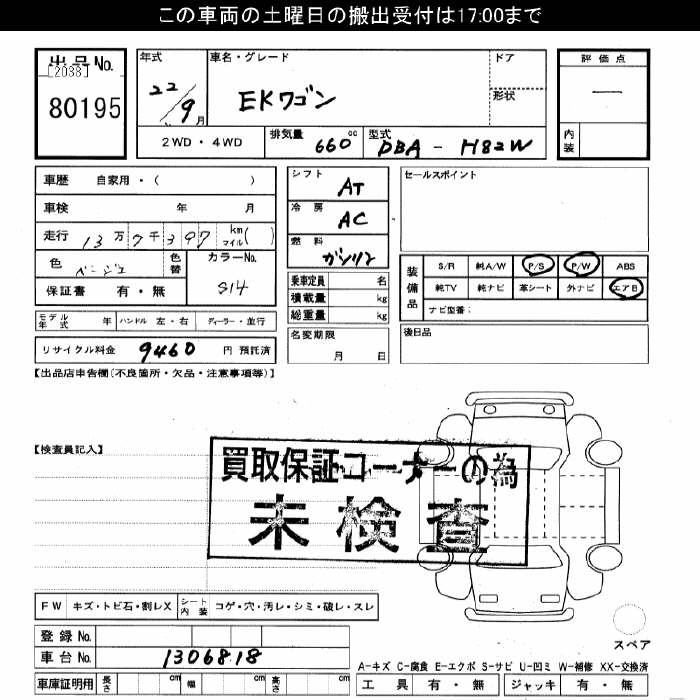 この車両の土曜日の搬出受付は17:00まで
出品No. [2088] 80195
年式 22/9月
車名・グレード EKワゴン
ドア
形状
評価点 —
内装
2WD・4WD
排気量 660cc
型式 DBA - H82W
車歴 自家用・( )
車検 年 月
走行 13万7千397 km マイル( )
色 ベージュ 色替
カラーNo. S14
保証書 有・無
シフト AT
冷房 AC
燃料 ガソリン
乗車定員 名
積載量 kg
総重量 kg
セールスポイント
装備品 S/R 純A/W P/S P/W ABS
純TV 純ナビ 革シート 外ナビ エアB
ナビ型番:
モデル年式 年 ハンドル 左・右 ディーラー・並行
名変期限 月 日
後日品
リサイクル料金 9460 円 預託済
【出品店申告欄(不良箇所・欠品・注意事項等)】
【検査員記入】
買取保証コーナーの為
未検査
FW キズ・トビ石・割レX シート内装 コゲ・穴・汚レ・シミ・破レ・スレ
スペア
登録No.
車台No. 1306818
A-キズ C-腐食 E-エクボ S-サビ U-凹ミ W-補修 XX-交換済
車庫証明用 長さ cm 幅 cm 高さ cm
工具 有・無 ジャッキ 有・無